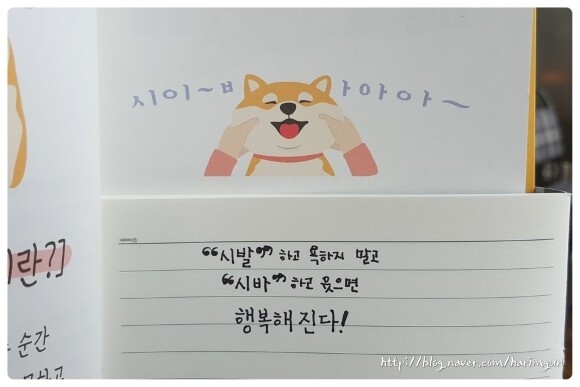 시이~ㅂ ㅏ아아~
"시발" 하고 욕하지 말고
"시바" 하고 웃으면
행복해진다!
란?]
순간
http://blog.naver.com/